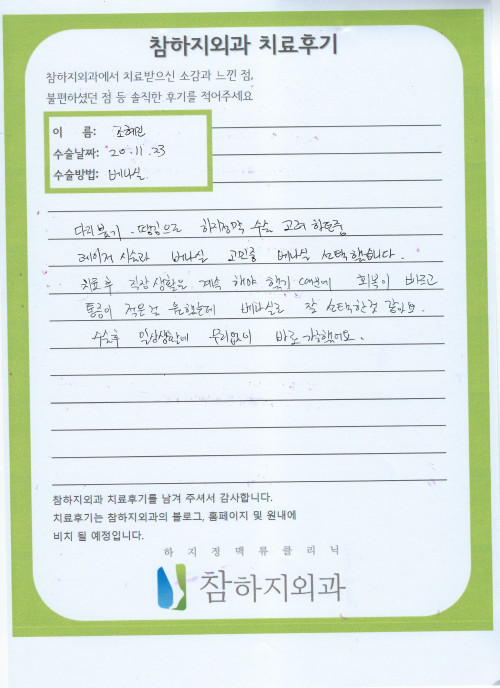 참하지외과 치료후기
참하지외과에서 치료받으신 소감과 느낀 점,
불편하셨던 점 등 솔직한 후기를 적어주세요
이 름: 조혜린
수술날짜: 20.11.23
수술방법: 베나실
다리붓기, 땡김으로 하지정맥 수술 고려 하던중
레이저 시술과 베나실 고민중 베나실 선택했습니다.
치료후 직장생활을 계속 해야 했기 때문에 회복이 빠르고
통증이 적은걸 원했는데 베나실로 잘 선택한것 같아요.
수술후 일상생활에 무리없이 바로 가능했어요.
참하지외과 치료후기를 남겨 주셔서 감사합니다.
치료후기는 참하지외과의 블로그, 홈페이지 및 원내에
비치 될 예정입니다.
하지정맥류클리닉
참하지외과